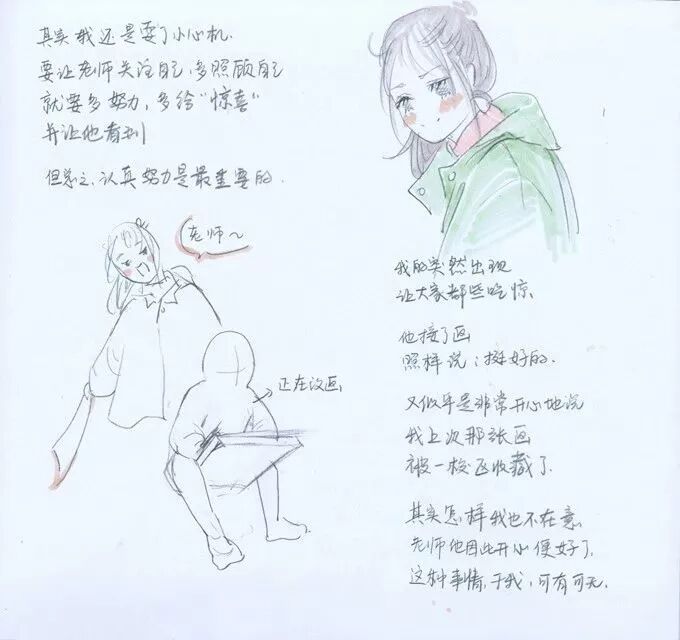 其实我还是耍了小心机.
要让老师关注自己,多照顾自己
就要多努力,多给"惊喜"
并让他看到
但总之,认真努力是最重要的.
老师~
正在改画
我的突然出现
让大家都些吃惊.
他接了画
照样说:挺好的.
又似乎是非常开心地说
我上次那张画
被一校区收藏了.
其实怎样我也不在意.
老师他因此开心便好了.
这种事情,于我,可有可无.